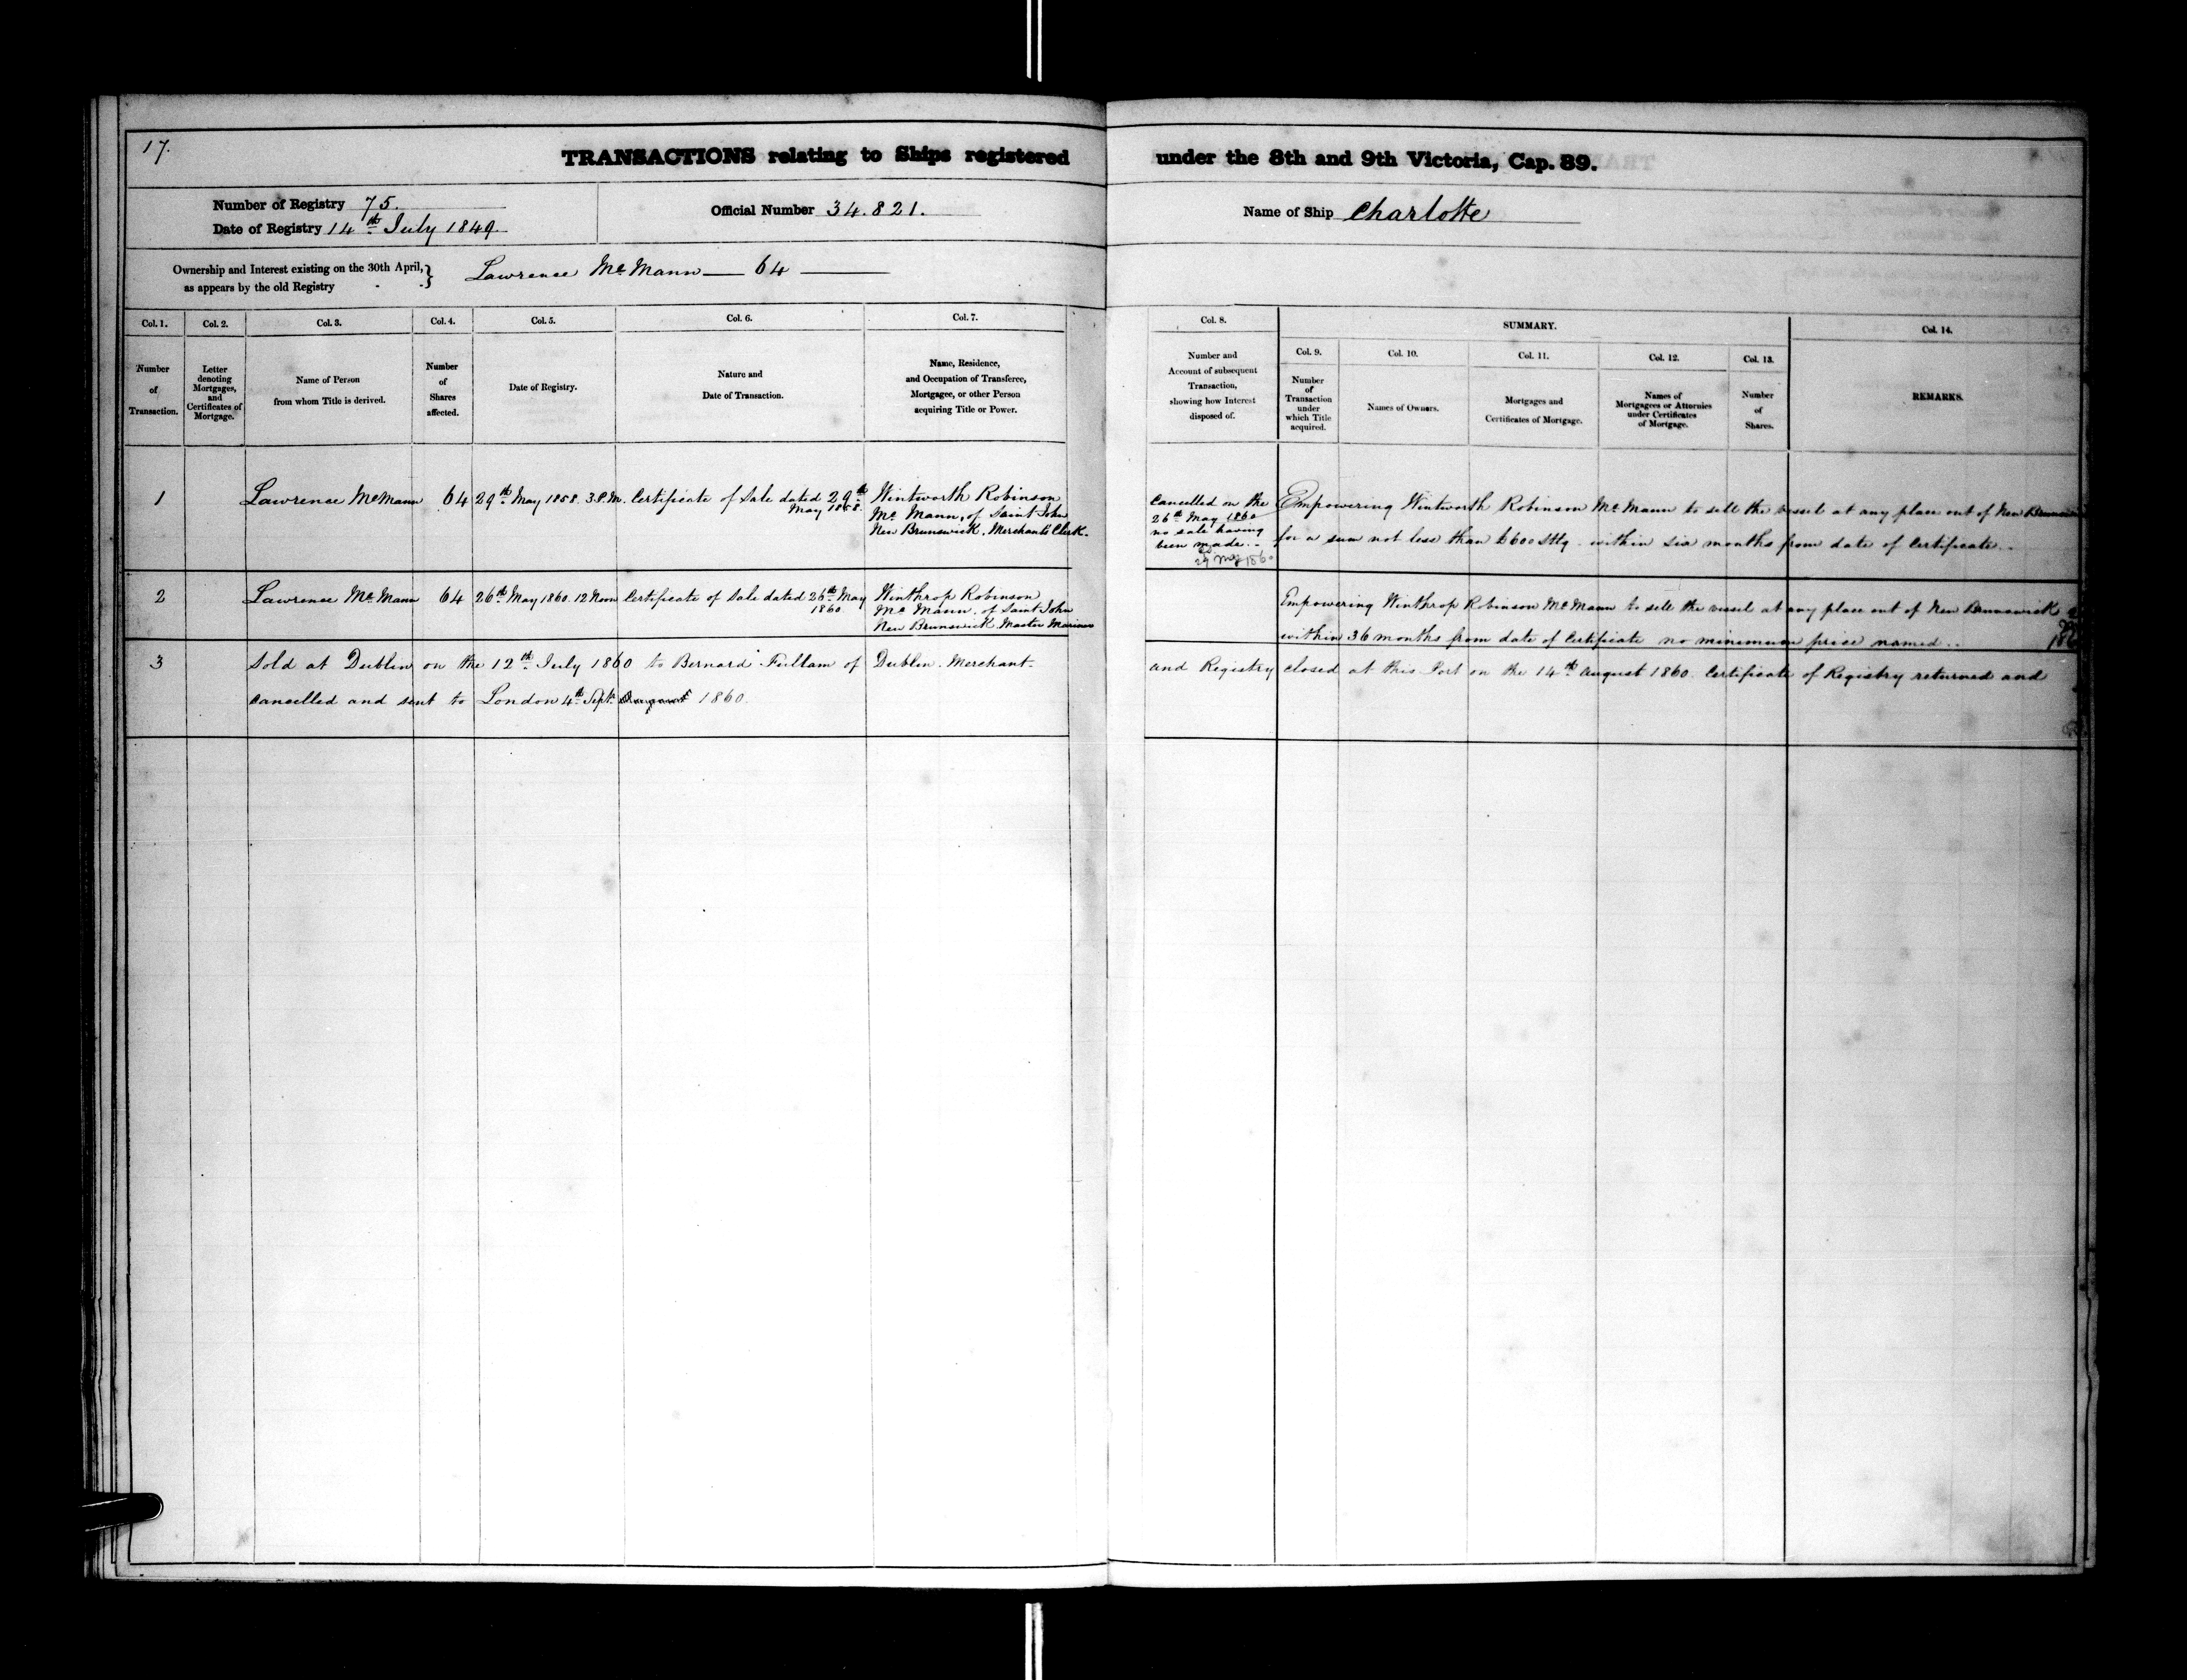 17.
TRANSACTIONS relating to Ships registered under the 8th and 9th Victoria, Cap. 89.
Number of Registry 75.
Date of Registry 14th July 1849.
Official Number 34.821.
Name of Ship Charlotte
Ownership and Interest existing on the 30th April,} Lawrence McMann — 64 —
as appears by the old Registry
Col. 1.
Number
of
Transaction.
Col. 2.
Letter
denoting
Mortgages,
and
Certificates of
Mortgage.
Col. 3.
Name of Person
from whom Title is derived.
Col. 4.
Number
of
Shares
affected.
Col. 5.
Date of Registry.
Col. 6.
Nature and
Date of Transaction.
Col. 7.
Name, Residence,
and Occupation of Transferee,
Mortgagee, or other Person
acquiring Title or Power.
Col. 8.
Number and
Account of subsequent
Transaction,
showing how Interest
disposed of.
SUMMARY.
Col. 9.
Number
of
Transaction
under
which Title
acquired.
Col. 10.
Names of Owners.
Col. 11.
Mortgages and
Certificates of Mortgage.
Col. 12.
Names of
Mortgagees or Attornies
under Certificates
of Mortgage.
Col. 13.
Number
of
Shares.
Col. 14.
REMARKS.
1 Lawrence McMann 64 29th May 1858. 3 P.M. Certificate of Sale dated 29th
May 1858.
Wintworth Robinson
Mc Mann, of Saint John
New Brunswick, Merchants Clerk.
Cancelled on the
26th May 1860
no sale having
been made..
29 May 1860
Empowering Wintworth Robinson McMann to sell the vessel at any place out of New Brunswick
for a sum not less than £600 Stlg. within six months from date of Certificate..
2 Lawrence Mc Mann 64 26th May 1860. 12 Noon Certificate of Sale dated 26th May
1860.
Winthrop Robinson
Mc Mann. of Saint John
New Brunswick Master Mariner
Empowering Winthrop Robinson McMann to sell the vessel at any place out of New Brunswick
within 36 months from date of Certificate no minimum price named..
3 Sold at Dublin on the 12th July 1860 to Bernard Fullam of Dublin. Merchant- and Registry closed at this Port on the 14th August 1860. Certificate of Registry returned and
cancelled and sent to London 4th Sept. August 1860.